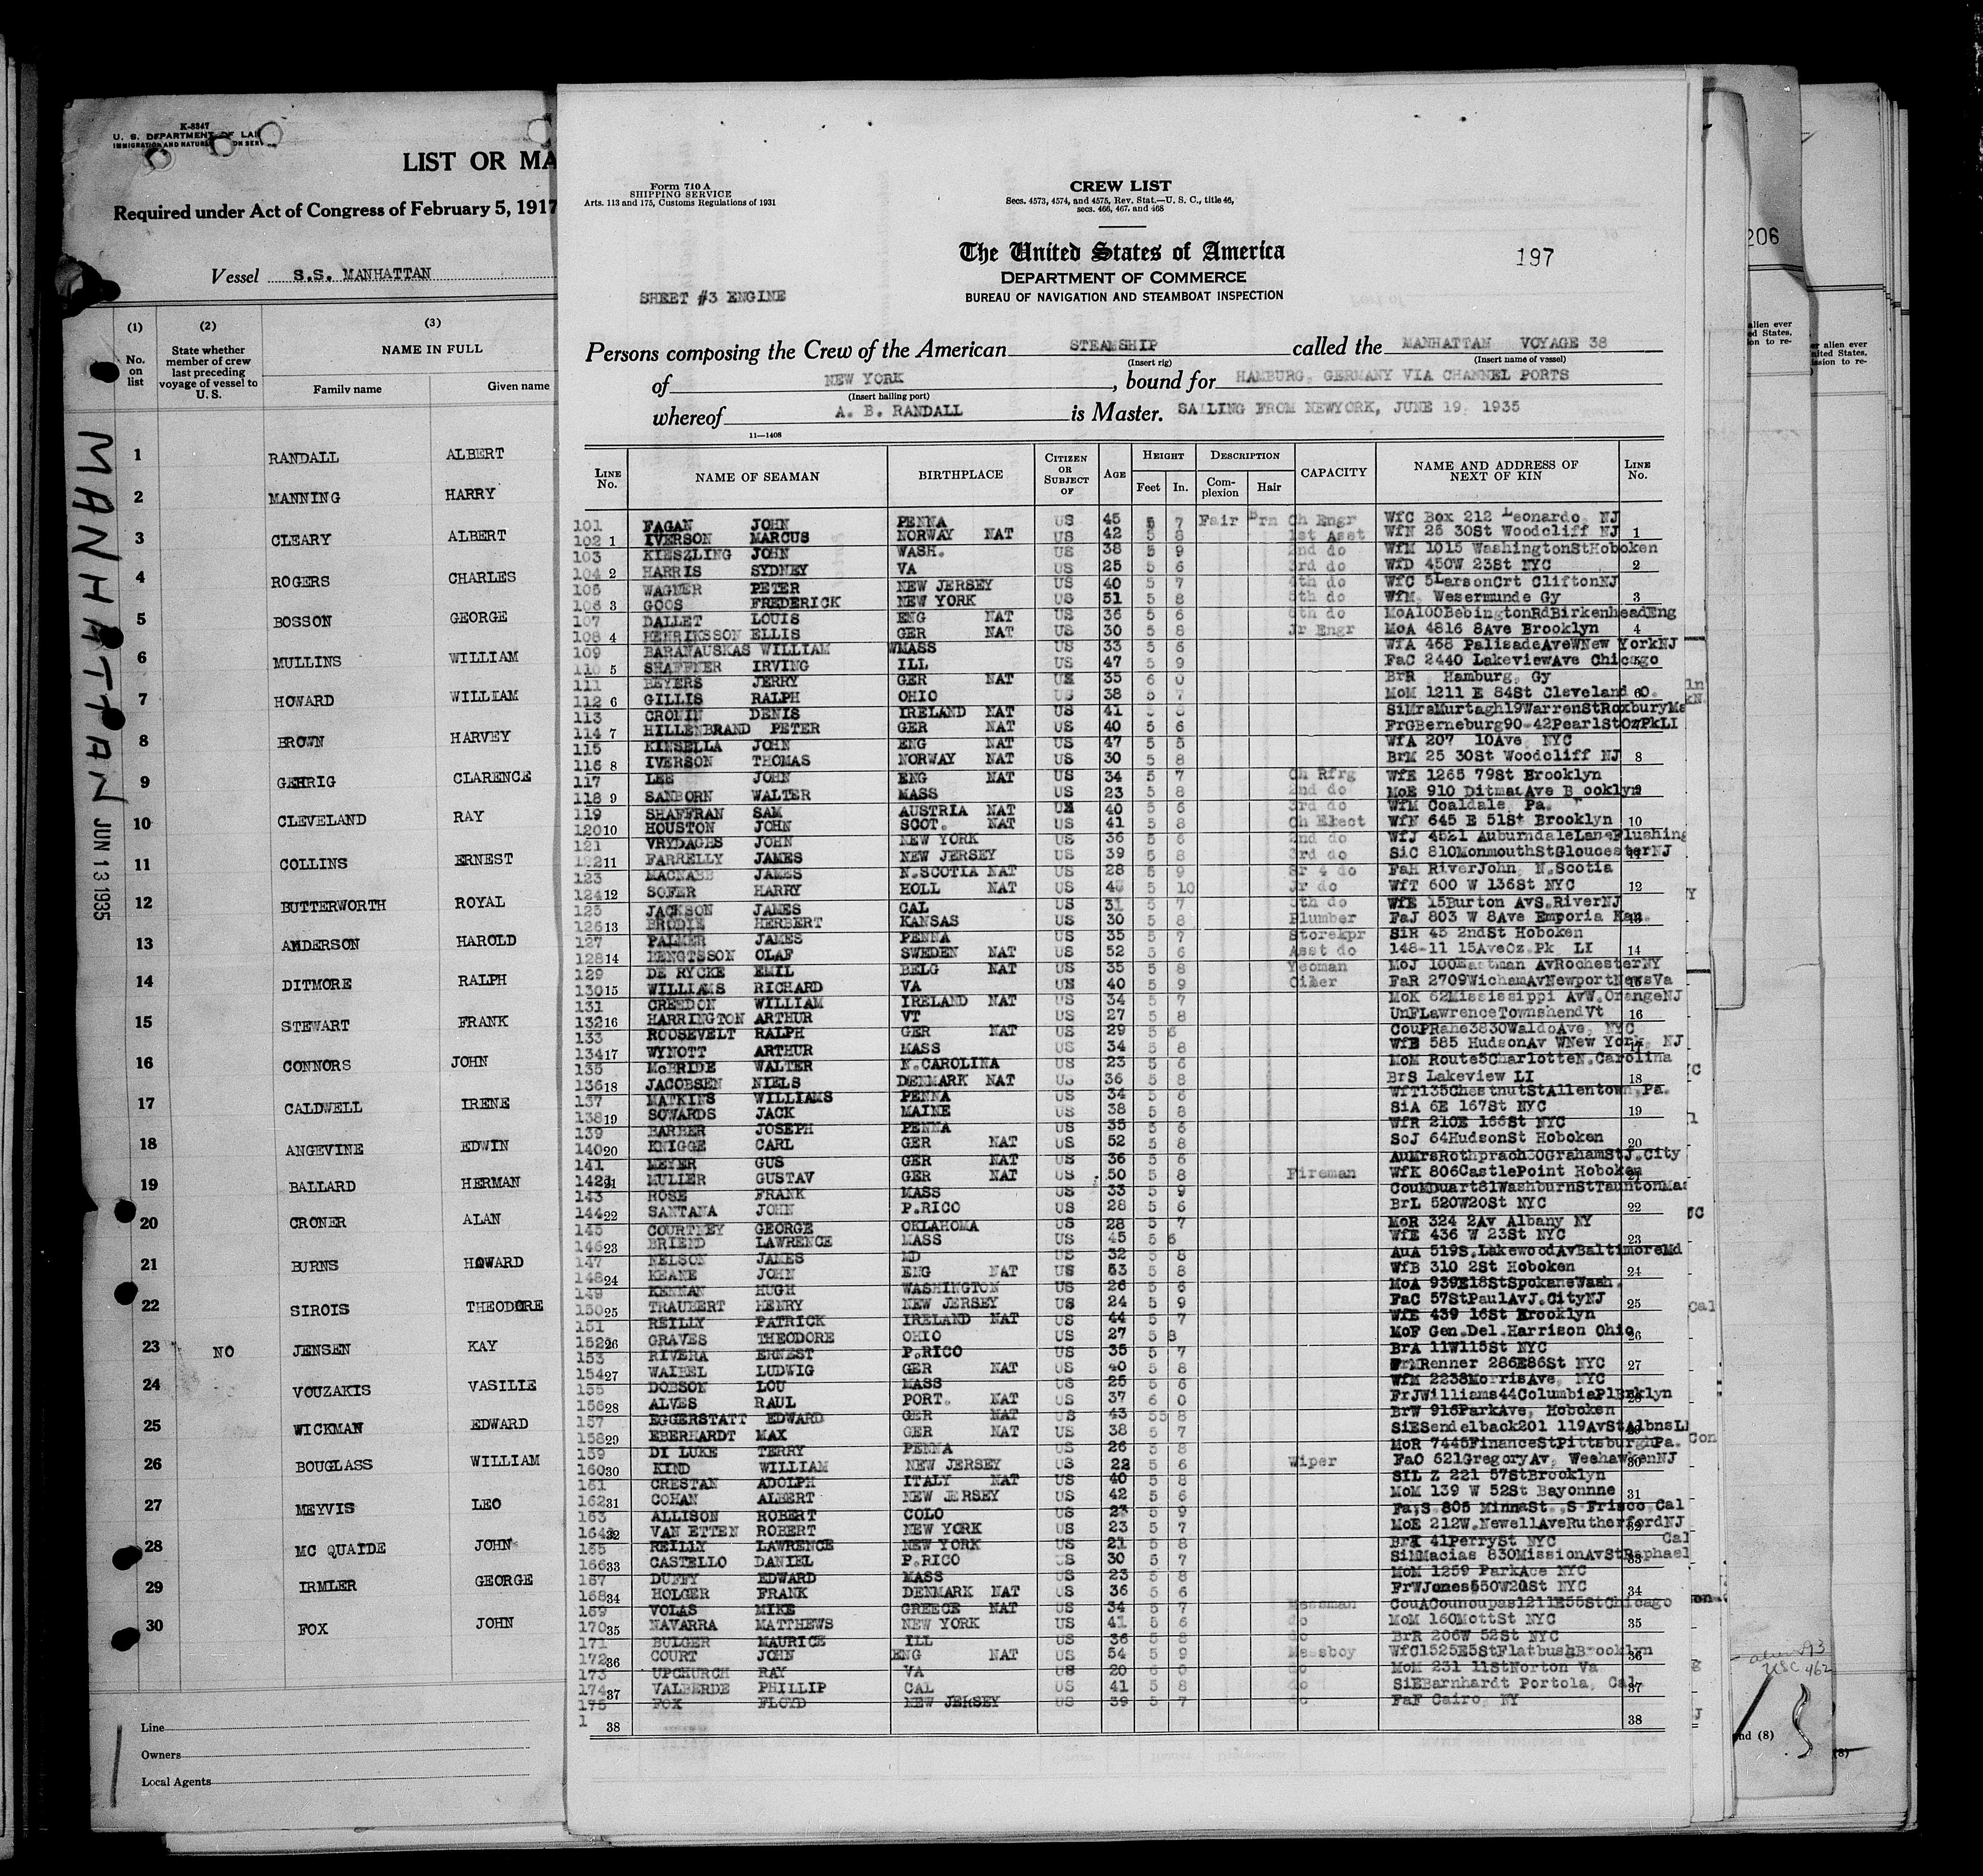 K-8847
U. S. DEPARTMENT OF LA
IMMIGRATION AND NATUR ON SERV
LIST OR MA
Required under Act of Congress of February 5, 1917
Vessel S.S. MANHATTAN
(1) (2) (3)
No. on list
State whether member of crew last preceding voyage of vessel to U. S.
NAME IN FULL
Family name Given name
MANHATTAN JUN 13 1935
1 RANDALL ALBERT
2 MANNING HARRY
3 CLEARY ALBERT
4 ROGERS CHARLES
5 BOSSON GEORGE
6 MULLINS WILLIAM
7 HOWARD WILLIAM
8 BROWN HARVEY
9 GEHRIG CLARENCE
10 CLEVELAND RAY
11 COLLINS ERNEST
12 BUTTERWORTH ROYAL
13 ANDERSON HAROLD
14 DITMORE RALPH
15 STEWART FRANK
16 CONNORS JOHN
17 CALDWELL IRENE
18 ANGEVINE EDWIN
19 BALLARD HERMAN
20 CRONER ALAN
21 BURNS HOWARD
22 SIROIS THEODORE
23 NO JENSEN KAY
24 VOUZAKIS VASILIE
25 WICKMAN EDWARD
26 BOUGLASS WILLIAM
27 MEYVIS LEO
28 MC QUAIDE JOHN
29 IRMLER GEORGE
30 FOX JOHN
Line
Owners
Local Agents
Form 710 A
SHIPPING SERVICE
Arts. 113 and 175, Customs Regulations of 1931
CREW LIST
Secs. 4573, 4574, and 4575, Rev. Stat.—U. S. C., title 46,
secs. 466, 467, and 468
The United States of America
DEPARTMENT OF COMMERCE
BUREAU OF NAVIGATION AND STEAMBOAT INSPECTION
197
SHEET #3 ENGINE
Persons composing the Crew of the American STEAMSHIP called the MANHATTAN VOYAGE 38
(Insert rig) (Insert name of vessel)
of NEW YORK, bound for HAMBURG, GERMANY VIA CHANNEL PORTS
(Insert hailing port)
whereof A. B. RANDALL is Master. SAILING FROM NEWYORK, JUNE 19, 1935
11—1408
LINE No. NAME OF SEAMAN BIRTHPLACE CITIZEN OR SUBJECT OF AGE HEIGHT Feet In. DESCRIPTION Complexion Hair CAPACITY NAME AND ADDRESS OF NEXT OF KIN LINE No.
101 FAGAN JOHN PENNA US 45 5 7 Fair Brn Ch Engr WfC Box 212 Leonardo, NJ
102 1 IVERSON MARCUS NORWAY NAT US 42 5 8 1st Asst WfN 25 30St Woodcliff NJ 1
103 KIESZLING JOHN WASH. US 38 5 9 2nd do WfM 1015 WashingtonStHoboken
104 2 HARRIS SYDNEY VA US 25 5 6 3rd do WfD 450W 23St NYC 2
105 WAGNER PETER NEW JERSEY US 40 5 7 4th do WfC 5LarsonCrt CliftonNJ
106 3 GOOS FREDERICK NEW YORK US 51 5 8 5th do WfM, Wesermunde Gy 3
107 DALLET LOUIS ENG NAT US 36 5 6 6th do MoA100BebingtonRdBirkenheadEng
108 4 HENRIKSSON ELLIS GER NAT US 30 5 8 Jr Engr MoA 4816 8Ave Brooklyn 4
109 BARANAUSKAS WILLIAM WMASS US 33 5 6 WfA 468 PalisadeAveWNew YorkNJ
110 5 SHAFFNER IRVING ILL US 47 5 9 FaC 2440 LakeviewAve Chicago
111 BEYERS JERRY GER NAT US 35 6 0 BrR Hamburg, Gy
112 6 GILLIS RALPH OHIO US 38 5 7 MoM 1211 E 84St Cleveland O. 6
113 CRONIN DENIS IRELAND NAT US 41 5 8 SiMrsMurtagh19WarrenStRoxburyMa
114 7 HILLENBRAND PETER GER NAT US 40 5 6 FrGBerneburg90-42PearlStOzPkLI
115 KINSELLA JOHN ENG NAT US 47 5 5 WfA 207 10Ave, NYC
116 8 IVERSON THOMAS NORWAY NAT US 30 5 8 BrM 25 30St Woodcliff NJ 8
117 LEE JOHN ENG NAT US 34 5 7 Ch Rfrg WfE 1265 79St Brooklyn
118 9 SANBORN WALTER MASS US 23 5 8 2nd do MoE 910 DitmasAve B ooklyn 9
119 SHAFFRAN SAM AUSTRIA NAT US 40 5 6 3rd do WfM Coaldale, Pa.
120 10 HOUSTON JOHN SCOT. NAT US 41 5 8 Ch Elect WfN 645 E 51St Brooklyn 10
121 VRYDAGHS JOHN NEW YORK US 36 5 6 2nd do WfJ 4521 AuburndaleLaneFlushing
122 11 FARRELLY JAMES NEW JERSEY US 39 5 8 3rd do SiC 810MonmouthStGloucesterNJ
123 MACNABB JAMES N.SCOTIA NAT US 28 5 9 Sr 4 do FaH RiverJohn, N.Scotia
124 12 SOFER HARRY HOLL NAT US 5 10 Jr do WfT 600 W 136St NYC 12
125 JACKSON JAMES CAL US 31 5 7 5th do WfE 15Burton AvS.RiverNJ
126 13 BRODIE HERBERT KANSAS US 30 5 8 Plumber FaJ 803 W 8Ave Emporia Kan. 13
127 PALMER JAMES PENNA US 35 5 7 Storekpr SiR 45 2ndSt Hoboken
128 14 BENGTSSON OLAF SWEDEN NAT US 52 5 6 Asst do 148-11 15AveOz.Pk LI 14
129 DE RYCKE EMIL BELG NAT US 35 5 8 Yeoman MoJ 100Eastman AvRochesterNY
130 15 WILLIAMS RICHARD VA US 40 5 9 Oiler FaR 2709WichamAvNewportNewsVa
131 CREEDON WILLIAM IRELAND NAT US 34 5 7 MoK 62Mississippi AvW.OrangeNJ
132 16 HARRINGTON ARTHUR VT US 27 5 8 UnFLawrenceTownshendVt 16
133 ROOSEVELT RALPH GER NAT US 29 5 6 CouPRahe3830WaldoAve, NYC
134 17 WYNOTT ARTHUR MASS US 34 5 8 WfB 585 HudsonAv WNew York, NJ
135 McBRIDE WALTER N.CAROLINA US 23 5 6 MoM Route5CharlotteN.Carolina
136 18 JACOBSEN NIELS DENMARK NAT US 36 5 8 BrS Lakeview LI 18
137 MATKINS WILLIAMS PENNA US 34 5 6 WfT135ChestnutStAllentown,Pa.
138 19 SOWARDS JACK MAINE US 38 5 8 SiA 6E 167St NYC 19
139 BARBER JOSEPH PENNA US 35 5 6 WfR 210E 166St NYC
140 20 KNIGGE CARL GER NAT US 52 5 8 SoJ 64HudsonSt Hoboken 20
141 MEYER GUS GER NAT US 36 5 6 AuMrsRothprach30GrahamStJ.City
142 21 MULLER GUSTAV GER NAT US 50 5 8 Fireman WfK 806CastlePoint Hoboken 21
143 ROSE FRANK MASS US 33 5 9 CouMDuart81WashburnStTauntonMas
144 22 SANTANA JOHN P.RICO US 28 5 6 BrL 520W20St NYC 22
145 COURTNEY GEORGE OKLAHOMA US 28 5 7 MoR 324 2Av Albany NY
146 23 BRIEND LAWRENCE MASS US 45 5 6 WfE 436 W 23St NYC 23
147 NELSON JAMES MD US 32 5 8 AuA 519S.LakewoodAvBaltimoreMd
148 24 KEANE JOHN ENG NAT US 53 5 8 WfB 310 2St Hoboken 24
149 KEENAN HUGH WASHINGTON US 26 5 6 MoA 939E18StSpokaneWash.
150 25 TRAUBERT HENRY NEW JERSEY US 24 5 9 FaC 57StPaulAvJ.CityNJ 25
151 REILLY PATRICK IRELAND NAT US 44 5 7 WfE 439 16St Brooklyn
152 26 GRAVES THEODORE OHIO US 27 5 8 MoF Gen.Del.Harrison Ohio 26
153 RIVERA ERNEST P.RICO US 35 5 7 BrA 11W115St NYC
154 27 WAIBEL LUDWIG GER NAT US 40 5 8 FrMRenner 286E86St NYC 27
155 DOBSON LOU MASS US 25 5 6 WfM 2238MorrisAve, NYC
156 28 ALVES RAUL PORT. NAT US 37 6 0 FrJWilliams44ColumbiaPlBrklyn
157 EGGERSTATT EDWARD GER NAT US 43 55 8 BrW 916ParkAve, Hoboken
158 29 EBERHARDT MAX GER NAT US 38 5 7 SiESendelback201 119AvStAlbnsLI
159 DI LUKE TERRY PENNA US 26 5 8 MoR 7445FinanceStPittsburghPa.
160 30 KIND WILLIAM NEW JERSEY US 22 5 6 Wiper FaO 621GregoryAv, WeehawkenNJ 30
161 CRESTAN ADOLPH ITALY NAT US 40 5 8 SIL Z 221 57StBrooklyn
162 31 COHAN ALBERT NEW JERSEY US 42 5 6 MoM 139 W 52St Bayonnne 31
163 ALLISON ROBERT COLO US 5 9 Fa,S 805 MinnaSt, S Frisco Cal
164 32 VAN ETTEN ROBERT NEW YORK US 23 5 7 MoE 212W.NewellAveRutherfordNJ 32
165 REILLY LAWRENCE NEW YORK US 21 5 8 41PerrySt NYC Cal
166 33 CASTELLO DANIEL P.RICO US 30 5 7 SiMMacias 830MissionAvStRaphael
167 DUFFY EDWARD MASS US 23 5 8 MoM 1259 ParkAve NYC
168 34 HOLGER FRANK DENMARK NAT US 36 5 6 FrWJones550W20St NYC 34
169 VOLAS MIKE GREECE NAT US 34 5 7 Messman CouACouncupas1211E55StChicago
170 35 NAVARRA MATTHEWS NEW YORK US 41 5 6 do MoM 160MottSt NYC 35
171 BULGER MAURICE ILL US 36 5 8 do BrR 206W 52St NYC
172 36 COURT JOHN ENG NAT US 54 5 9 Messboy WfC1525E5StFlatbushBrooklyn 36
173 UPCHURCH RAY VA US 20 6 0 do MoM 231 11StNorton Va
174 37 VALBERDE PHILLIP CAL US 41 5 8 do SiEBarnhardt Portola, Cal 37
175 FOX FLOYD NEW JERSEY US 39 5 7 do FaF Cairo, NY
1 38 38
206